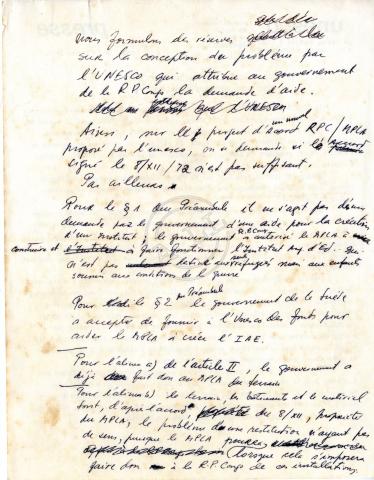 Nous formulons des réserves
sur la conception du problème par
l'UNESCO qui attribue au gouvernement
de la R.P.Congo la demande d'aide.
Ainsi, sur le projet d'accord RPC/MPLA
proposé par l'unesco, on a demandé si l'accord
signé le 8/XII/72 n'est pas suffisant.
Par ailleurs
Pour le § 1 du Préambule il ne s'agit pas d'une
demande par le gouvernement d'une aide pour la création
d'un institut; le gouvernement R.P.Congo a autorisé le MPLA à
construire et à faire fonctionner l'Institut Aug. d'Ed. qui
n'est pas destiné aux réfugiés mais aux enfants
soumis aux conditions de la guerre
Pour le § 2 du Préambule le gouvernement de la Suède
a accepté de fournir à l'Unesco des fonds pour
aider le MPLA à créer l'IAE.
Pour l'alinéa a) de l'article II, le gouvernement a
déjà fait don au MPLA du terrain
Pour l'alinéa b) le terrain, les bâtiments et le matériel
sont, d'après l'accord du 8/XII, propriété
du MPLA, le problème d'une restitution n'ayant pas
de sens, puisque le MPLA pourra (lorsque cela s'imposera
faire don à la R.P.Congo de ces installations.